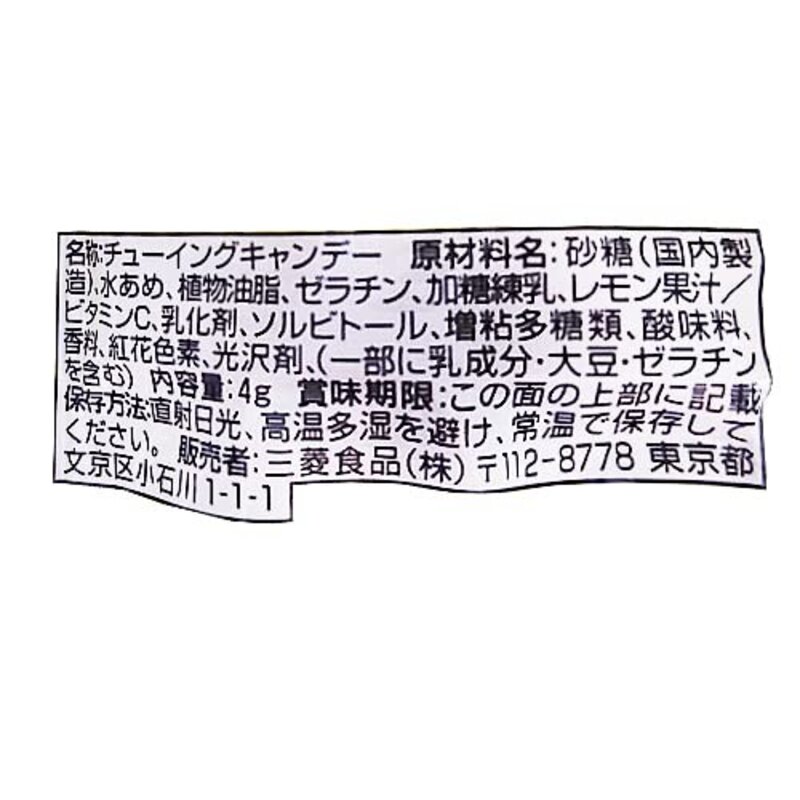 名称:チューイングキャンデー 原材料名:砂糖(国内製
造)、水あめ、植物油脂、ゼラチン、加糖練乳、レモン果汁/
ビタミンC、乳化剤、ソルビトール、増粘多糖類、酸味料、
香料、紅花色素、光沢剤、(一部に乳成分・大豆・ゼラチン
を含む) 内容量:4g 賞味期限:この面の上部に記載
保存方法:直射日光、高温多湿を避け、常温で保存して
ください。 販売者:三菱食品(株) 〒112-8778 東京都
文京区小石川1-1-1